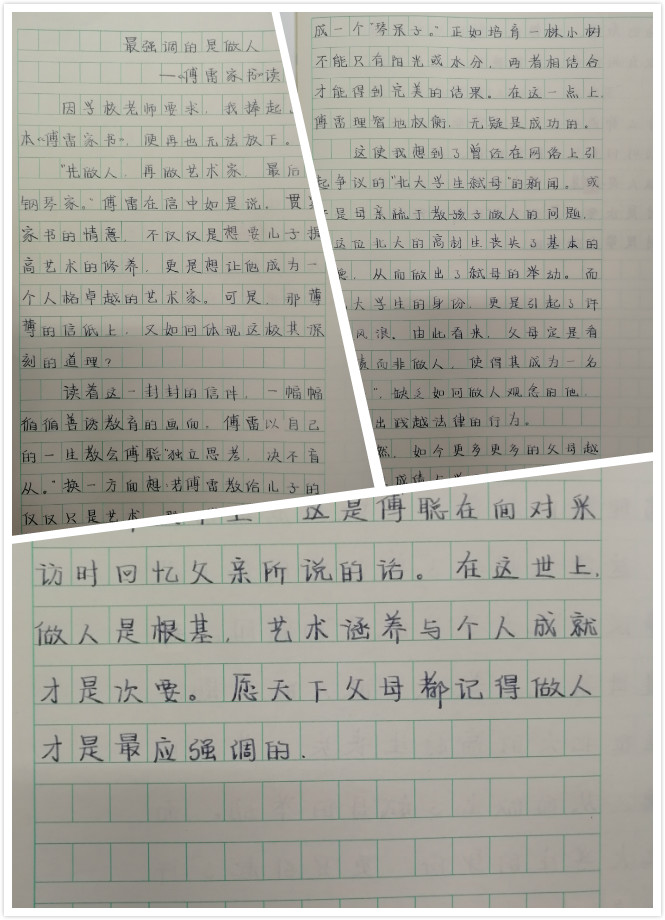 最强调的是做人
—《傅雷家书》读
因学校老师要求，我捧起
本《傅雷家书》，便再也无法放下。
“先做人，再做艺术家，最后
钢琴家。”傅雷在信中如是说。贯
家书的情意，不仅仅是想要儿子提
高艺术的修养，更是想让他成为一
个人格卓越的艺术家。可是，那薄
薄的信纸上，又如何体现这极其深
刻的道理？
读着这一封封的信件，一幅幅
循循善诱教育的画面，傅雷以自己
的一生教会傅聪“独立思考，决不盲
从。”换一方面想，若傅雷教给儿子的
仅仅只是艺术
成一个“琴呆子。”正如培育一株小树
不能只有阳光或水分，两者相结合
才能得到完美的结果。在这一点上，
傅雷理智地权衡，无疑是成功的。
这使我想到了曾经在网络上引
起争议的“北大学生弑母”的新闻。或
是母亲疏于教孩子做人的问题，
这位北大的高材生丧失了基本的
，从而做出了弑母的举动。而
大学生的身份，更是引起了许
风浪。由此看来，父母定是看
而非做人，使得其成为一名
”，缺乏如何做人观念的他，
出践越法律的行为。
然，如今更多更多的父母越
这是傅聪在面对采
访时回忆父亲所说的话。在这世上，
做人是根基，艺术涵养与个人成就
才是次要。愿天下父母都记得做人
才是最应强调的.